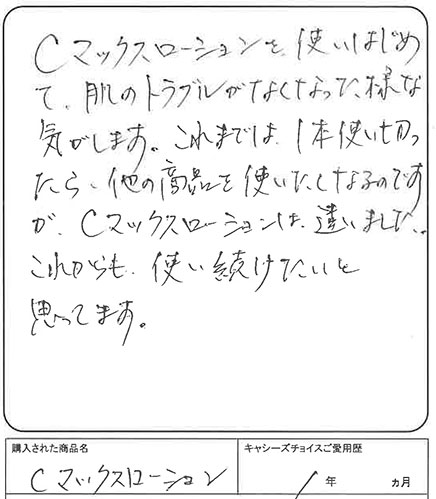 Cマックスローションを、使いはじめ
て、肌のトラブルがなくなった、様な
気がします。これまでは、1本使い切っ
たら、他の商品を使いたくなるのです
が、Cマックスローションは、違いました。
これからも、使い続けたいと
思ってます。
購入された商品名
キャシーズチョイスご愛用歴
Cマックスローション
1年 ヵ月